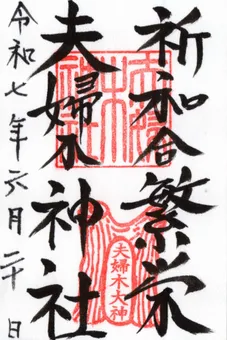 祈和合繁栄
夫婦木神社
令和七年六月二十日
夫婦木大神